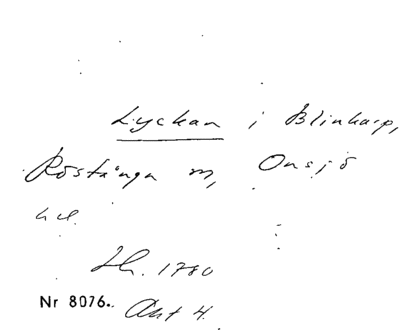 Lyckan i Blinkarp,
Röstånga sn, Onsjö
hd.
Sk. 1780
Nr 8076. Akt 4.